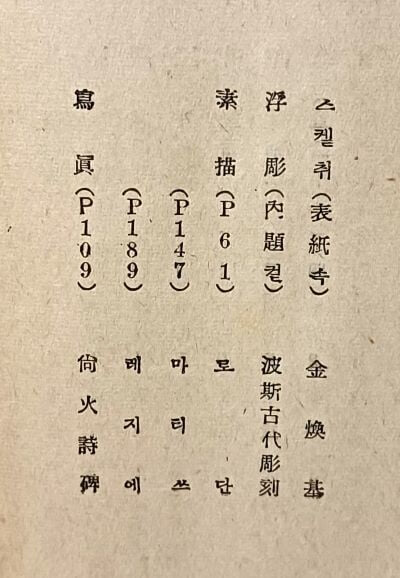 스켙취(表紙속) 金煥基
浮彫(內題컽) 波斯古代彫刻
素描(P61) 로단
(P147) 마티쓰
(P189) 레지에
寫眞(P109) 尙火詩碑